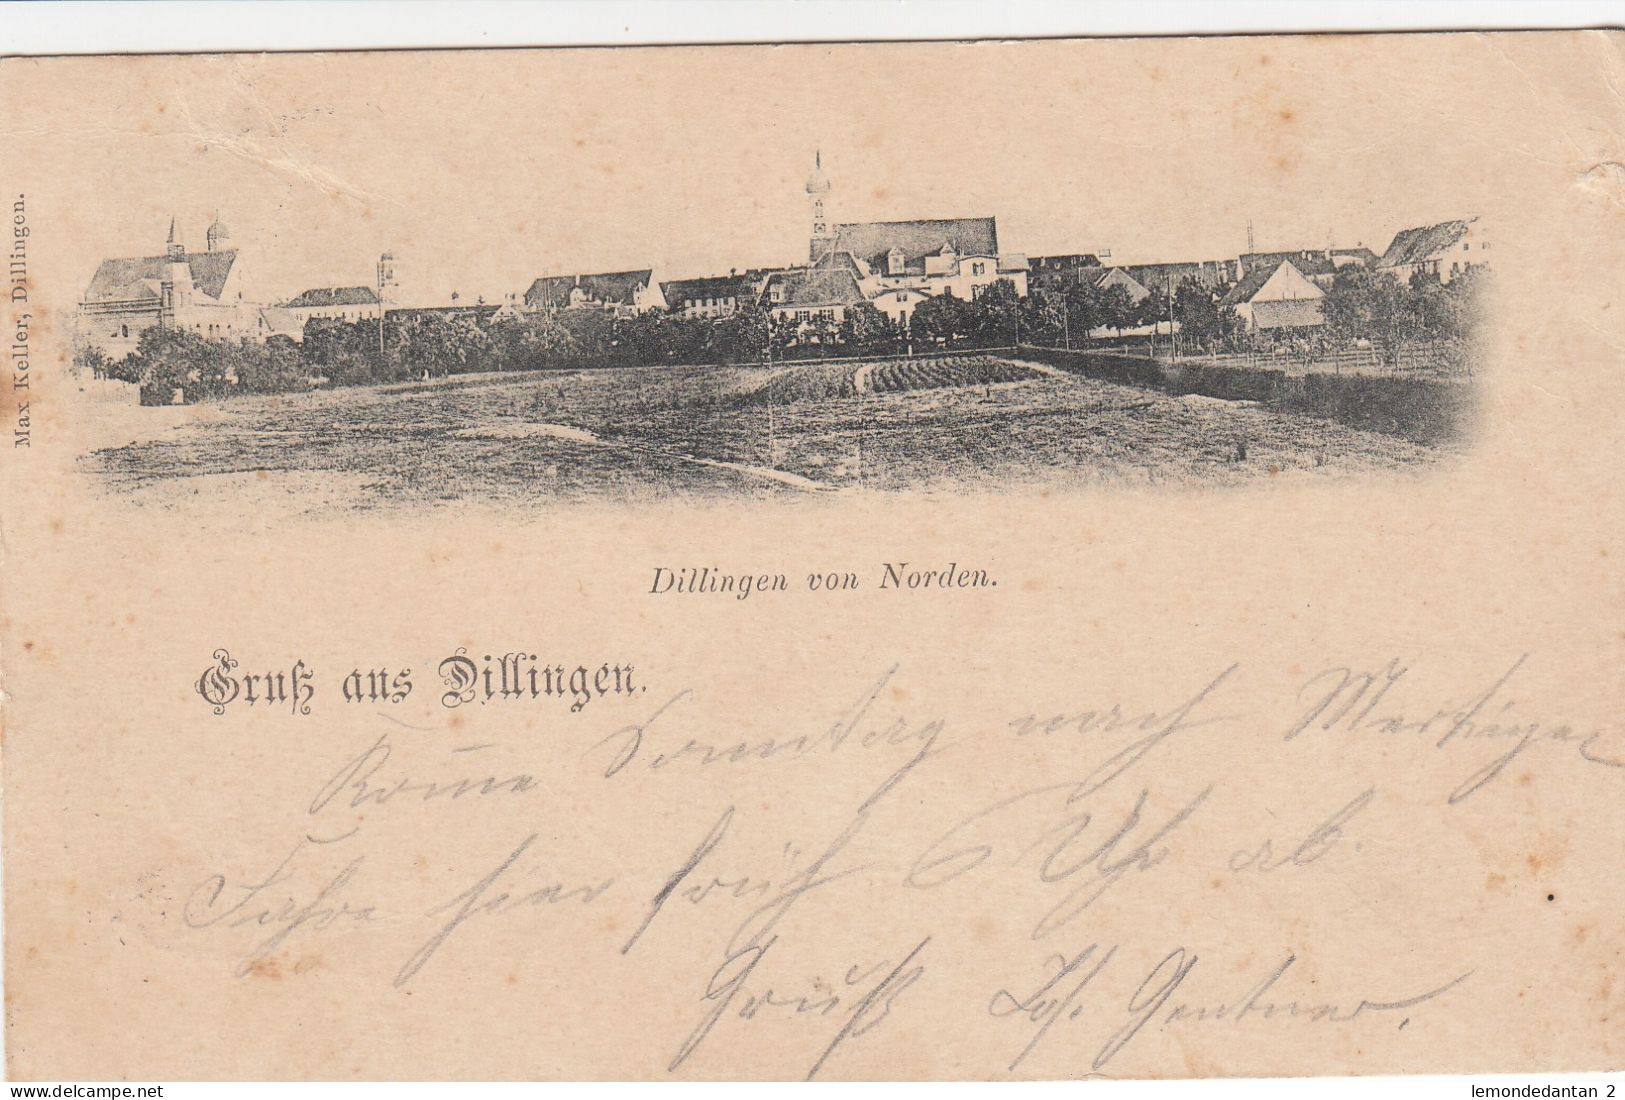 Max Keller, Dillingen.
Dillingen von Norden.
Gruß aus Dillingen.
Kom̅e Sonntag nach Mertingen
Fahre hier früh 6 Uhr ab.
Gruß Jos. Gentner.
www.delcampe.net
lemondedantan 2